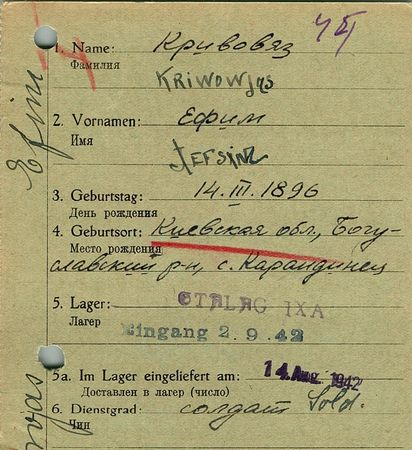 1. Name: Кривовяз
Фамилия
KRIWOWJAS
2. Vornamen: Ефим
Имя
3. Geburtstag: 14.III.1896
День рождения
4. Geburtsort: Киевская обл., Богу-
Место рождения
славский р-н, с. Карандинец
5. Lager: STALAG IXA
Лагер
Eingang 2.9.42
5a. Im Lager eingeliefert am: 14. Aug. 1942
Доставлен в лагер (число)
6. Dienstgrad: солдат Sold.
Чин
Efim